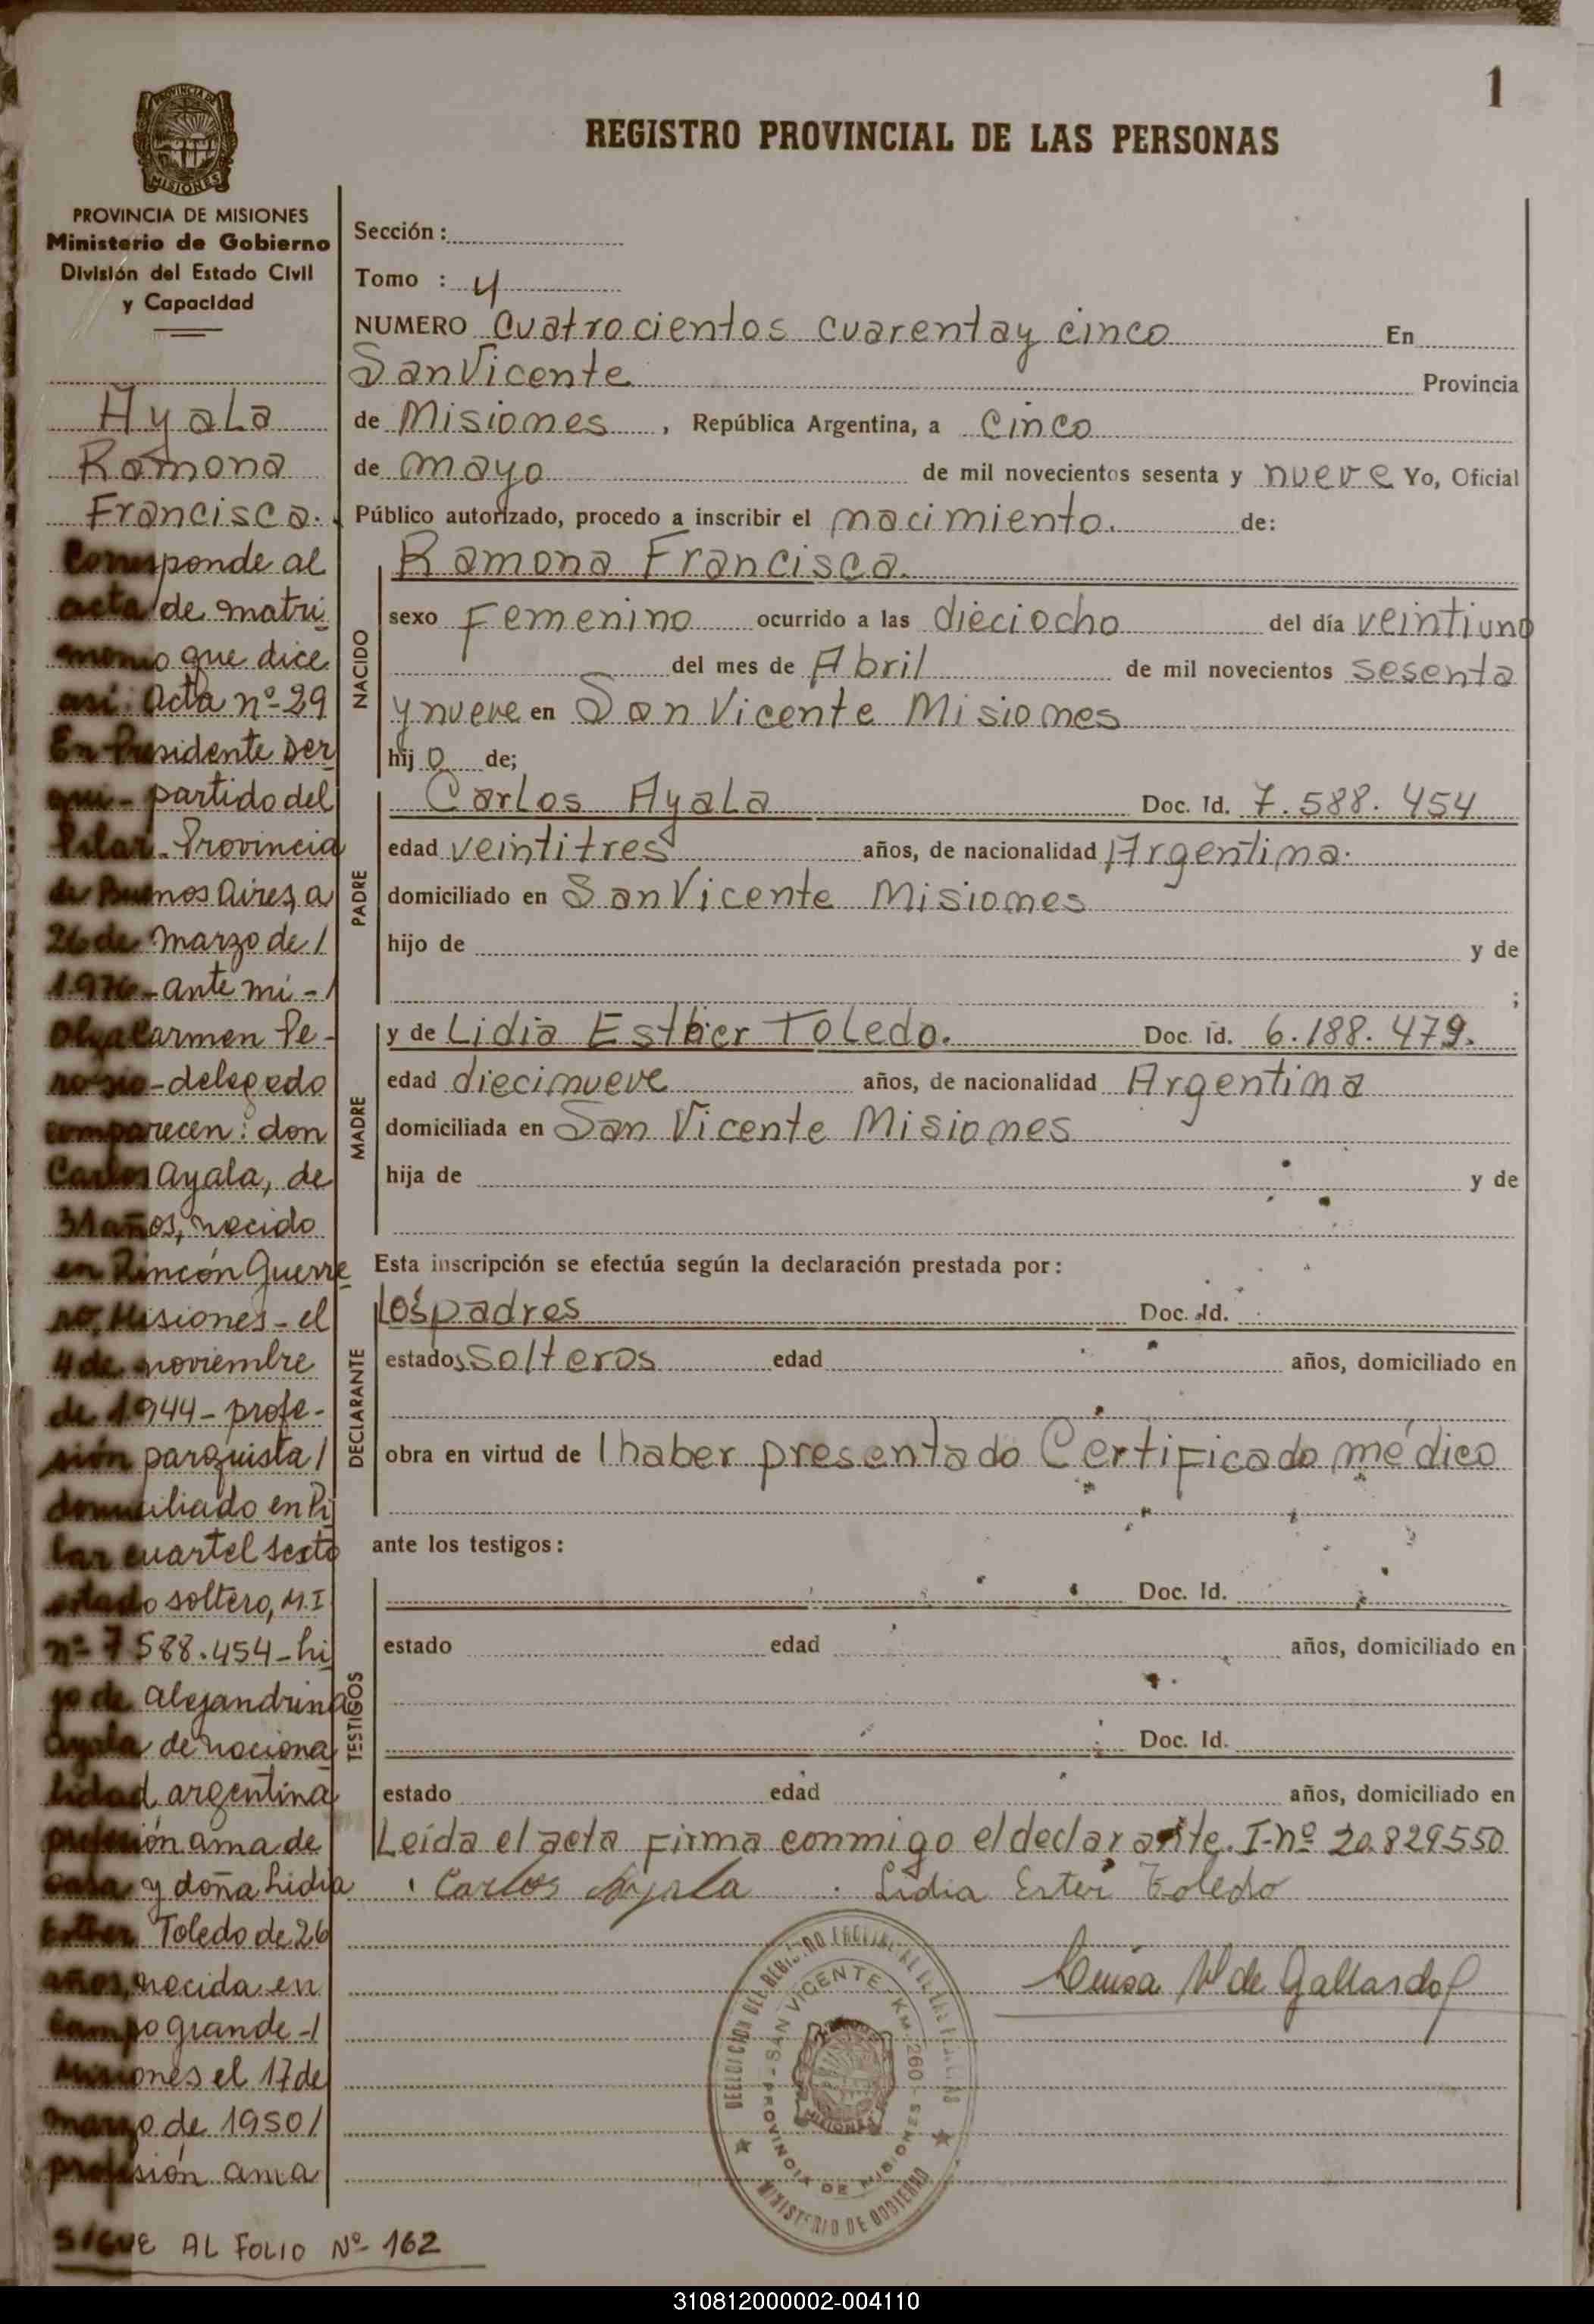 1
REGISTRO PROVINCIAL DE LAS PERSONAS
PROVINCIA DE MISIONES
MISIONES
PROVINCIA DE MISIONES
Ministerio de Gobierno
División del Estado Civil
y Capacidad
Ayala
Ramona
Francisca.
Corresponde al
acta de matri
monio que dice
así: Acta nº 29
En Presidente Der
qui - partido del
Pilar. Provincia
de Buenos Aires, a
26 de marzo de /
1.976 - ante mi - /
Olga Carmen Pe-
 - delegado
comparecen: don
Carlos Ayala, de
31 años, nacido
en Rincón Guerre
ro, Misiones - el
4 de noviembre
de 1944 - profe-
sión parquista /
domiciliado en Pi
lar cuartel sexto
estado soltero, M.I
nº 7 588.454 - hi
jo de Alejandrina
Ayala de naciona
lidad argentina
profesión ama de
casa y doña Lidia
Esther Toledo de 26
años, nacida en
Campo grande - /
Misiones el 17 de
marzo de 1950 /
profesión ama
SIGUE AL FOLIO Nº 162
Sección :
Tomo : 4
NUMERO Cuatrocientos cuarentay cinco En
San Vicente Provincia
de Misiones , República Argentina, a Cinco
de mayo de mil novecientos sesenta y nueve Yo, Oficial
Público autorizado, procedo a inscribir el nacimiento. de:
NACIDO
Ramona Francisca.
sexo Femenino ocurrido a las dieciocho del día veintiuno
del mes de Abril de mil novecientos sesenta
y nueve en San Vicente Misiones
hij a de;
PADRE
Carlos Ayala Doc. Id. 7.588.454
edad veintitres años, de nacionalidad Argentina.
domiciliado en San Vicente Misiones
hijo de y de
;
MADRE
y de Lidia Esther Toledo. Doc. Id. 6.188.479.
edad diecinueve años, de nacionalidad Argentina
domiciliada en San Vicente Misiones
hija de y de
Esta inscripción se efectúa según la declaración prestada por:
DECLARANTE
los padres Doc. Id.
estados solteros edad años, domiciliado en
obra en virtud de / haber presentado Certificado médico
ante los testigos:
TESTIGOS
Doc. Id.
estado edad años, domiciliado en
Doc. Id.
estado edad años, domiciliado en
Leída el acta firma conmigo el declarante. I-nº 20.829550
Carlos Ayala Lidia Ester Toledo
Luisa de Gallardo
SAN VICENTE - KM. 260 - PROVINCIA DE MISIONES
MISIONES
MINISTERIO DE GOBIERNO
310812000002-004110